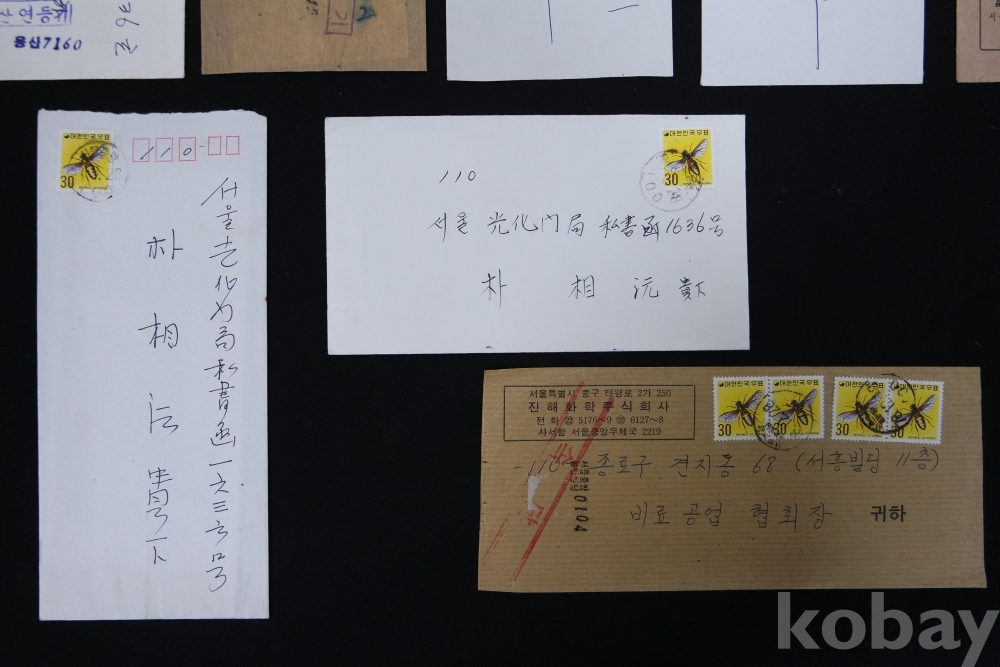 용산7160
대한민국우표
30
110-
서울光化门局私書函一六三六号
朴相沅貴下
대한민국우표
30
110
서울 光化门局 私書函1636号
朴 相 沅 貴下
서울특별시 중구 태평로 2가 250
진해화학주식회사
전화 ㉓ 5176~9 ㉘ 6127~8
사서함 서울중앙우체국 2219
대한민국우표 대한민국우표
30 30 30 30
-110- 종로구 견지동 68 (서흥빌딩 11층)
비료공업 협회장 귀하
0104
kobay